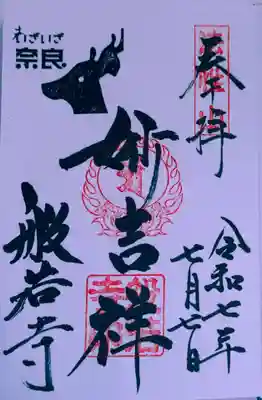 奉拝
令和七年
七月七日
妙吉祥
わざいざ
奈良
般若寺